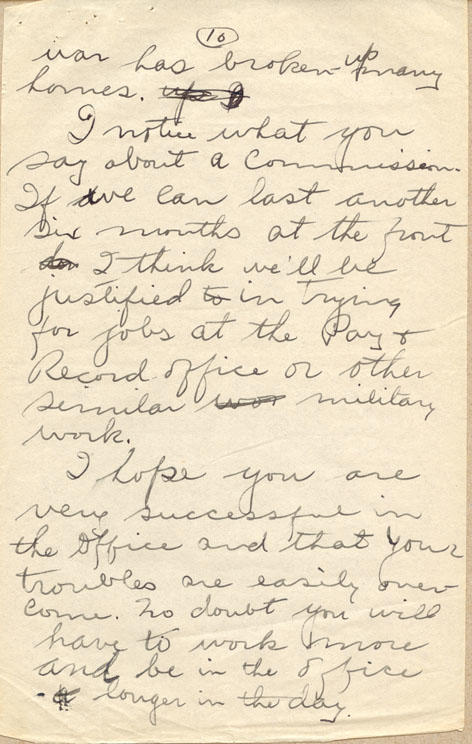 10
war has broken up many
homes.
I notice what you
say about a Commission.
If we can last another
six months at the front
I think we'll be
justified to in trying
for jobs at the Pay &
Record office or other
similar military
work.
I hope you are
very successful in
the Office and that your
troubles are easily over-
come. No doubt you will
have to work more
and be in the office
longer in the day.